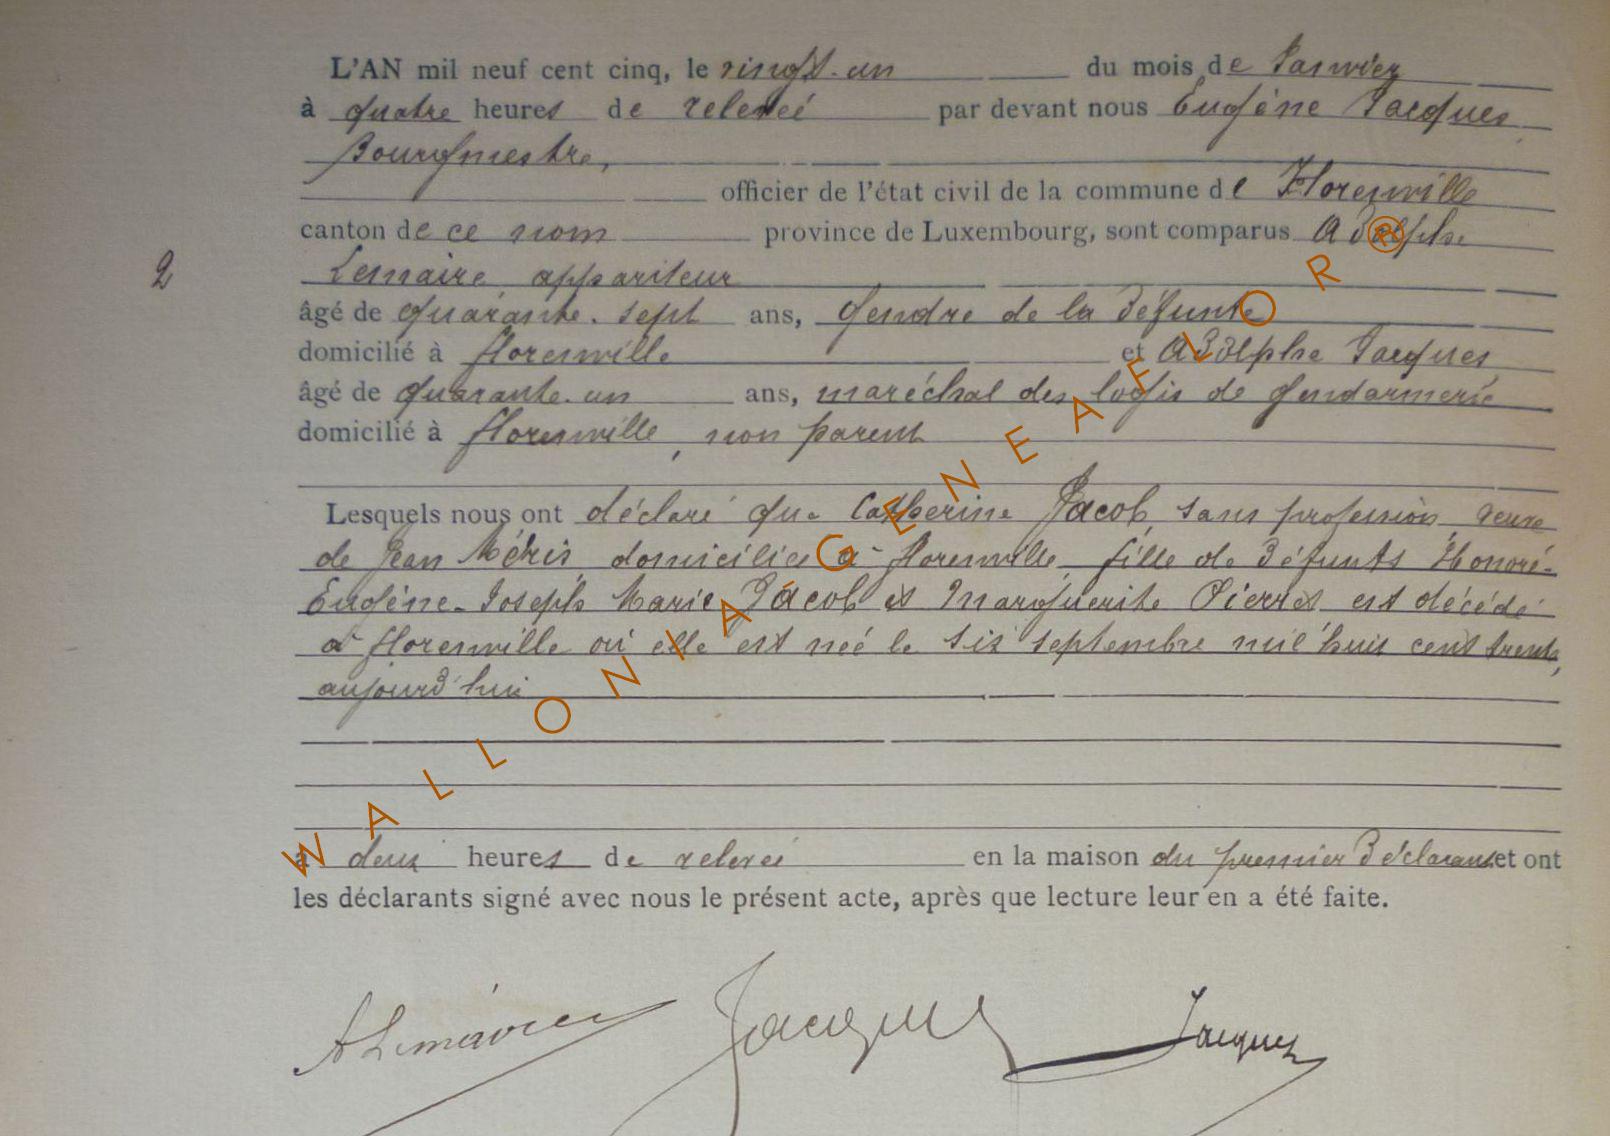 L'AN mil neuf cent cinq, le vingt-un du mois de Janvier
à quatre heures de relevée par devant nous Eugène Jacques
Bourgmestre,
officier de l'état civil de la commune de Florenville
canton de ce nom province de Luxembourg, sont comparus Adolphe
2
Lemaire appariteur
âgé de quarante-sept ans, gendre de la défunte
domicilié à florenville et Adolphe Jacques
âgé de quarante-un ans, maréchal des logis de gendarmerie
domicilié à florenville, non parent
Lesquels nous ont déclaré que Catherine Jacob, sans profession, veuve
de Jean Méris domiciliée à florenville, fille de défunts Honoré-
Eugène-Joseph Marie Jacob et Marguerite Pierret est décédé
à florenville où elle est née le six septembre mil huit cent trente,
aujourd'hui
à deux heures de relevée en la maison du premier déclarant et ont
les déclarants signé avec nous le présent acte, après que lecture leur en a été faite.
Jacques Jacques
WALLONIA GENEAFLOR ®